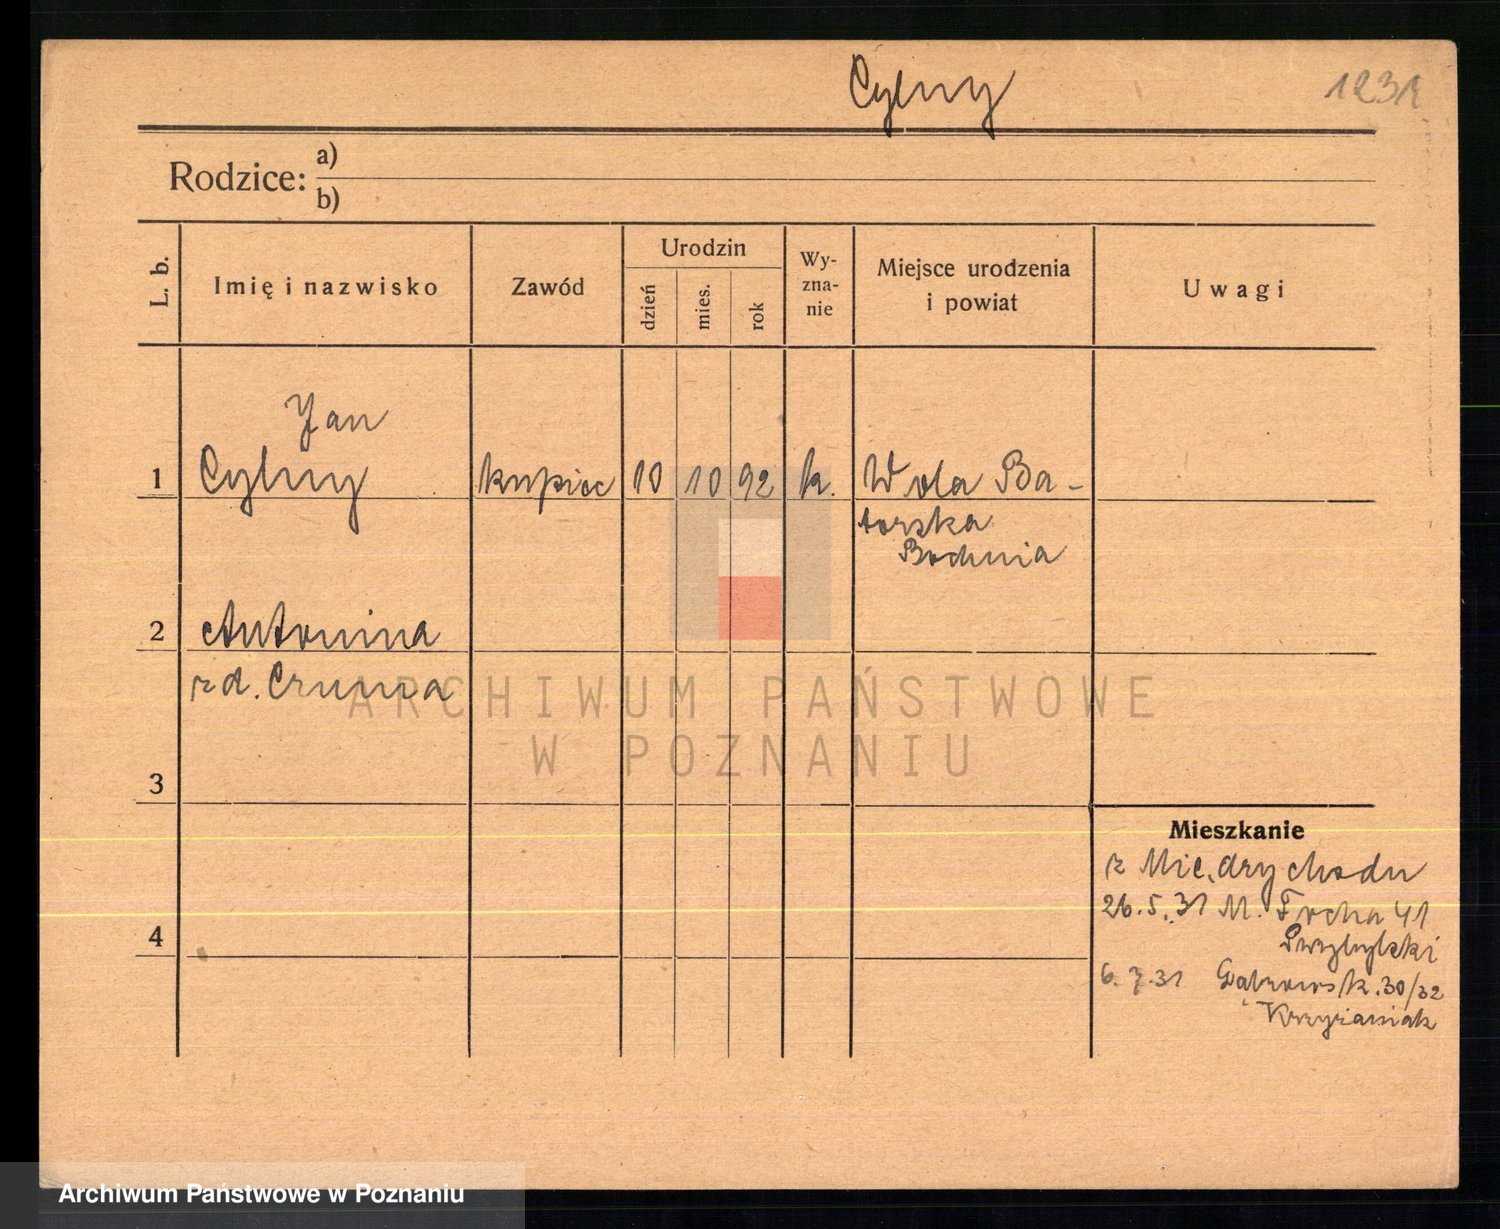 Cylny 1231
Rodzice: a)
b)
L. b. Imię i nazwisko Zawód Urodzin dzień mies. rok Wy-zna-nie Miejsce urodzenia i powiat Uwagi
Jan
1 Cylny kupiec 10 10 92 k. Wola Ba-
torska
Bochnia
2 Antonina
zd.
3
4
Mieszkanie
z Międrychodu
26.5.31 M. Focha 41
Przybylski
6.7.31 Dąbrowsk. 30/32
Krzyżaniak
ARCHIWUM PAŃSTWOWE
W POZNANIU
Archiwum Państwowe w Poznaniu